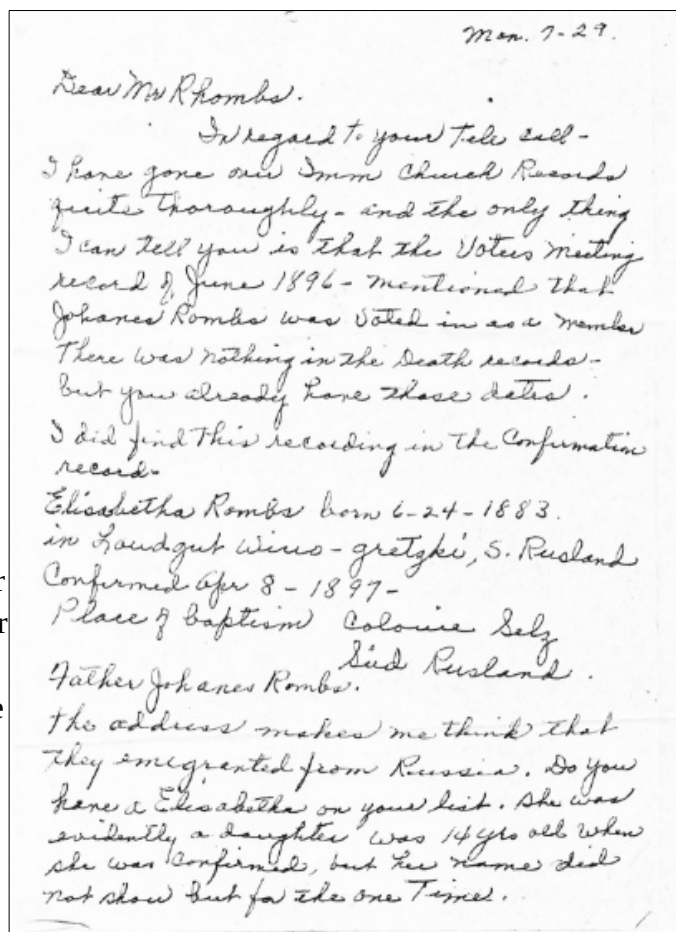 Mon. 7-29.
Dear Mr Rhombs.
In regard to your Tele call -
I have gone over Imm Church Records
quite thoroughly - and the only thing
I can tell you is that the Voters Meeting
record of June 1896 - mentioned that
Johanes Rombs was Voted in as a member
There was nothing in the Death records -
but you already have those dates.
I did find this recording in the Confirmation
record -
Elisabetha Rombs born 6-24-1883.
in Landgut Wino-gretzki, S. Rusland
Confirmed Apr 8 - 1897 -
Place of baptism Colonie Selz
Süd Rusland.
Father Johanes Rombs.
the address makes me think that
they emigrated from Russia. Do you
have a Elisabetha on your list. She was
evidently a daughter was 14 yrs old when
she was confirmed, but her name did
not show but for the one Time.
r
r
e